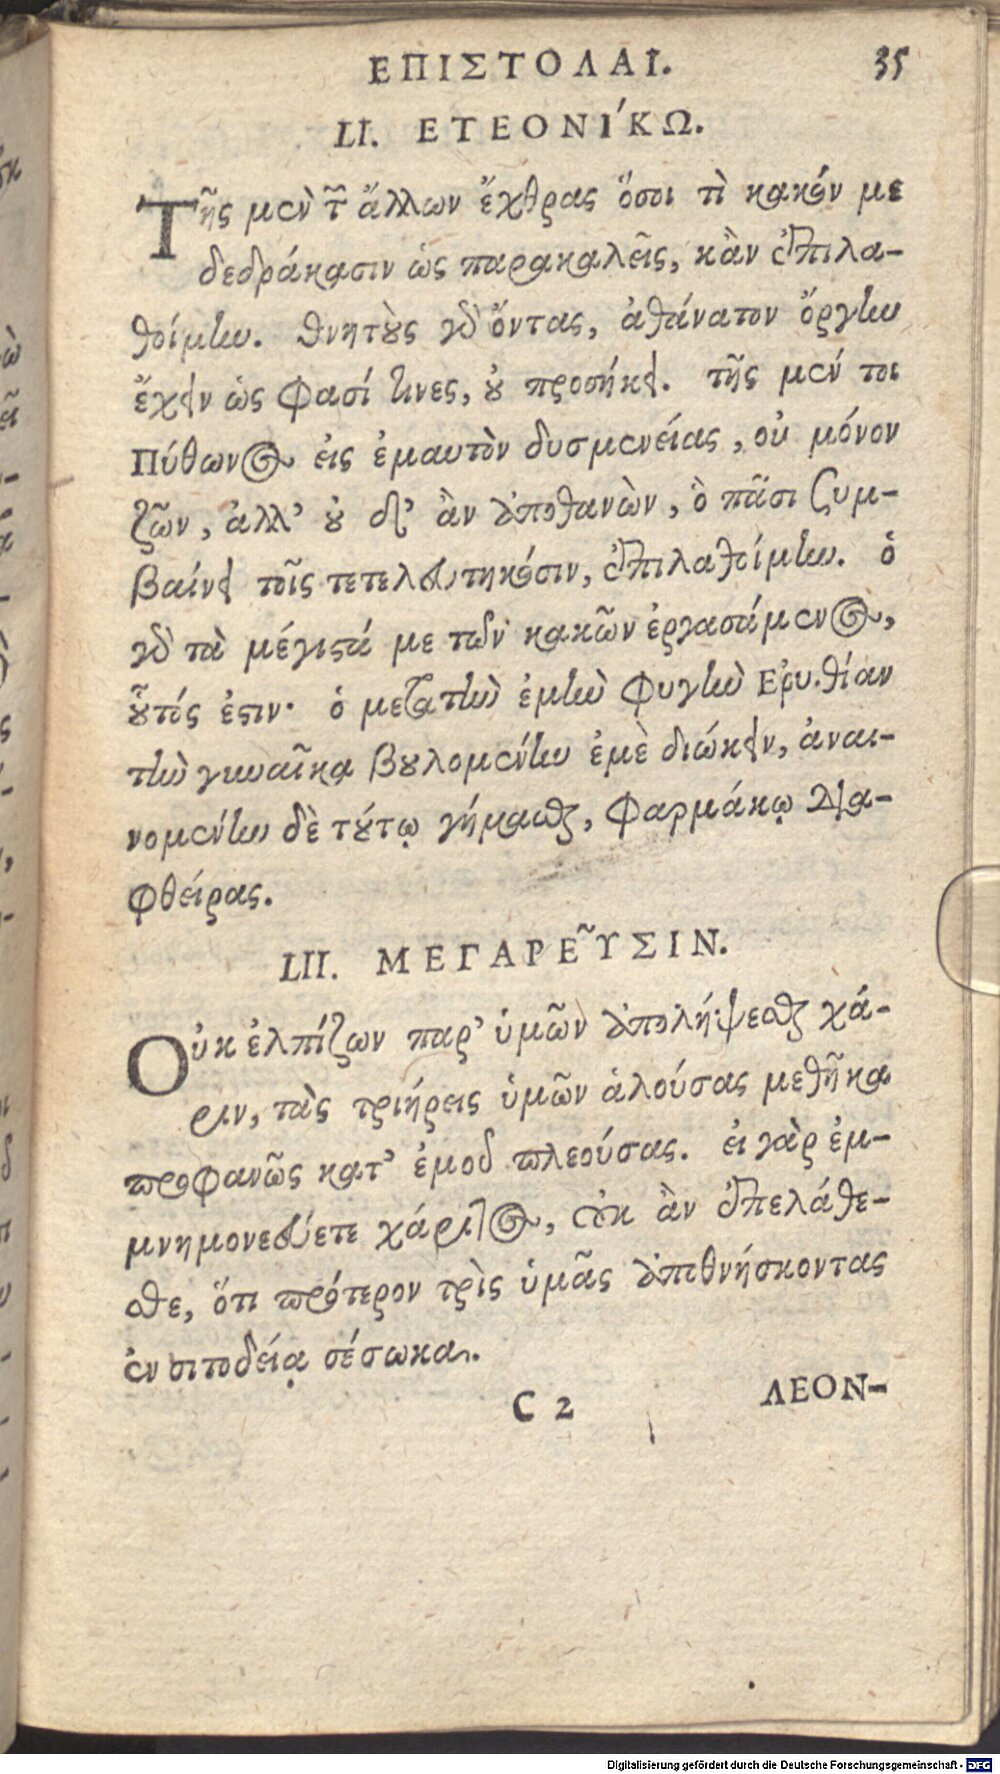 ΕΠΙΣΤΟΛΑΙ. 35
LI. ΕΤΕΟΝΙ΄ΚΩ.
Τῆς μὲν τ̃ ἄλλων ἔχθρας ὅσοι τὶ κακόν με
δεδράκασιν ὡς παρακαλεῖς, κἂν ἐπιλα-
θοίμην. θνητοὺς γὸ ὄντας, ἀθάνατον ὄργην
ἔχειν ὡς φασί τινες, οὐ προσήκει. τῆς μέν τοι
Πύθωνος εἰς ἐμαυτὸν δυσμενείας, οὐ μόνον
ζῶν, ἀλλ' οὐ δ' ἂν ἀποθανὼν, ὃ πᾶσι συμ-
βαίνει τοῖς τετελευτηκόσιν, ἐπιλαθοίμην. ὁ
γὸ τὰ μέγιστά με τῶν κακῶν ἐργασάμενος,
οὗτός ἐστιν· ὁ μετὰ τὴν ἐμὴν φυγὴν Ερυθίαν
τὴν γυναῖκα βουλομένην ἐμὲ διώκειν, ἀναι-
νομένην δὲ τούτῳ γήμασθαι, φαρμάκῳ δια-
φθείρας.
LII. ΜΕΓΑΡΕ῀ΥΣΙΝ.
Οὐκ ἐλπίζων παρ' ὑμῶν ἀπολήψεσθαι χά-
ριν, τὰς τριήρεις ὑμῶν ἁλούσας μεθῆκα
προφανῶς κατ' ἐμοῦ πλεούσας. εἰ γὰρ ἐμ-
μνημονεύετε χάριτος, οὐκ ἂν ἐπελάθε-
σθε, ὅτι πρότερον τρὶς ὑμᾶς ἀποθνήσκοντας
ἐν σιτοδείᾳ σέσωκα.
C 2 ΛΕΟΝ-
Digitalisierung gefördert durch die Deutsche Forschungsgemeinschaft - DFG